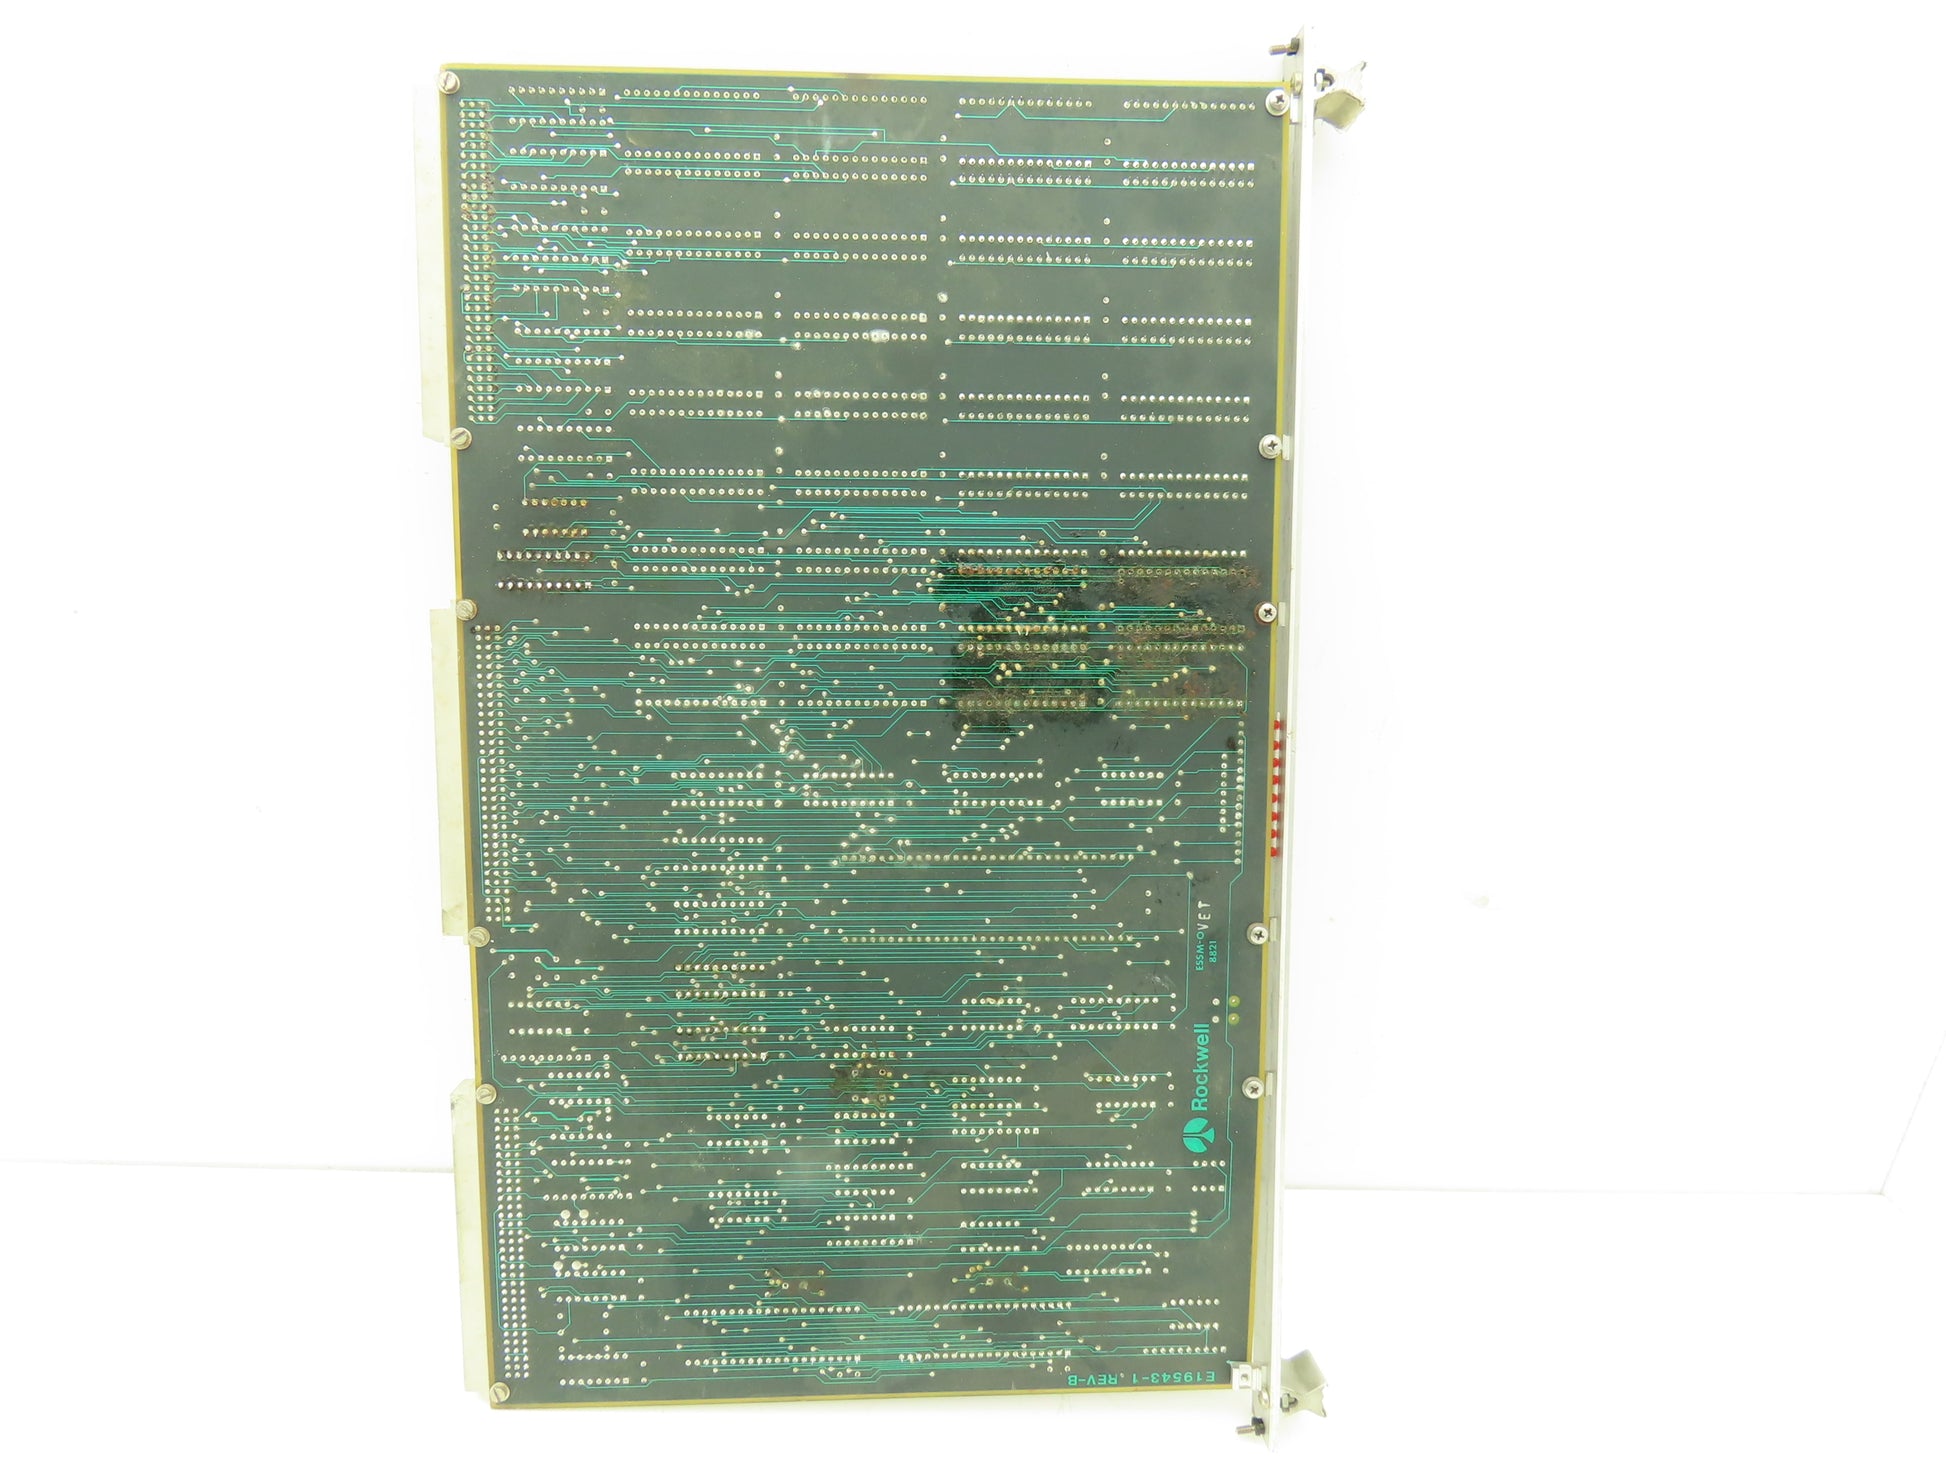 ESSM-O VET
8821
Rockwell
E19543-1 REV-B